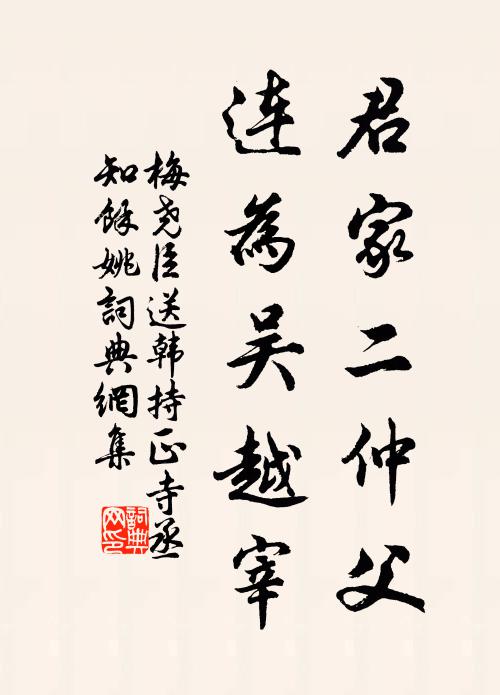 君家二仲父
连為吴越宰
梅尧臣送韩持正寺丞
知餘姚詞典網集
詞典
网印